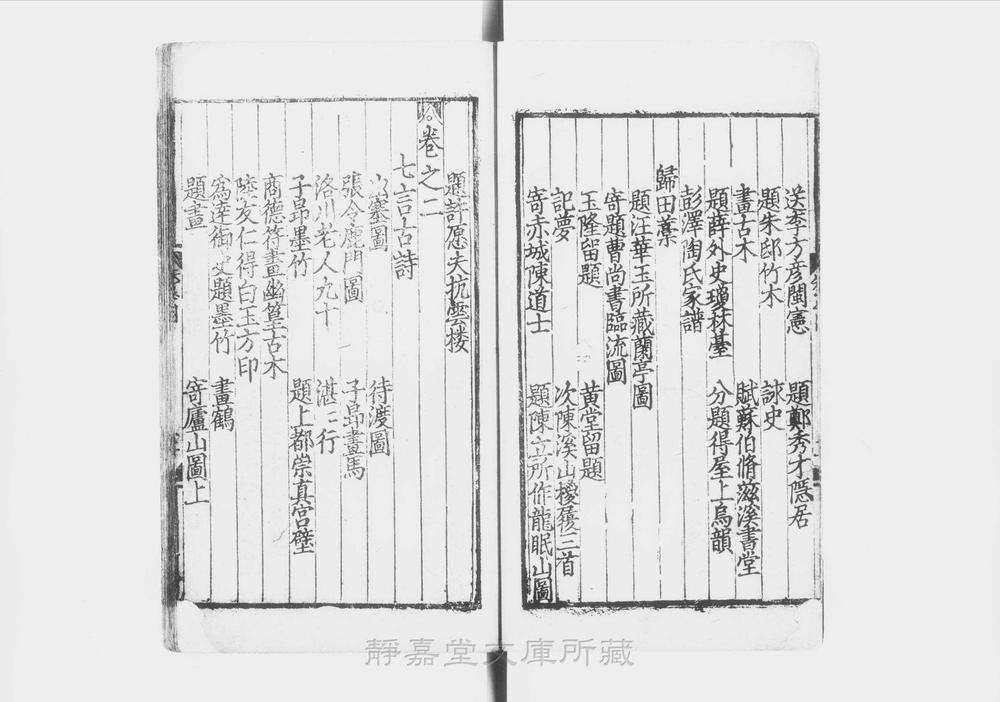 送李方彥閩憲　題鄭秀才隱居
題朱邸竹木　詠史
畫古木　賦蘇伯脩滋溪書堂
題薛外史瓊林臺　分題得屋上烏韻
彭澤陶氏家譜
歸田藁
題汪華玉所藏蘭亭圖
寄題曹尚書臨流圖
玉隆留題　黃堂留題
記夢　次陳溪山椶履三首
寄赤城陳道士　題陳立所作龍眠山圖
題許愿夫抗雲楼
卷之二
七言古詩
塞圖　待渡圖
張令鹿門圖　子昂畫馬
洛川老人九十　湛湛行
子昂墨竹　題上都崇真宮壁
商德符畫幽篁古木
陸友仁得白玉方印
爲達御史題墨竹　畫鶴
題畫　寄廬山圖上
靜嘉堂文庫所藏